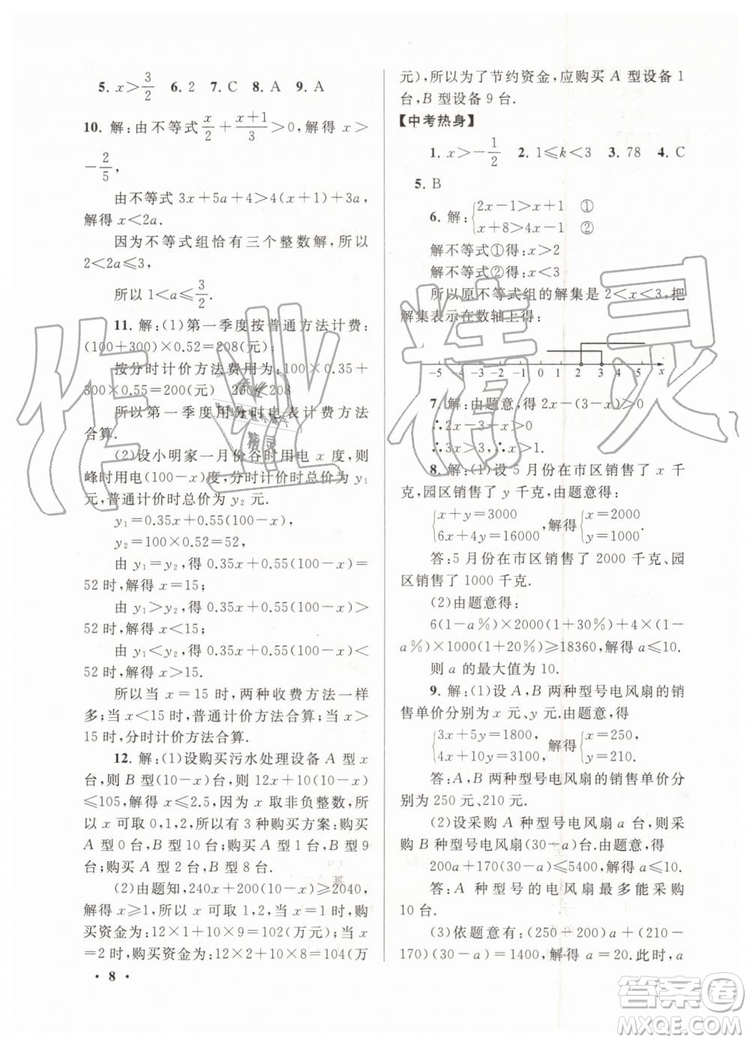 5. x>3/2  6. 2  7. C  8. A  9. A
10. 解:由不等式 x/2+(x+1)/3>0,解得 x>
-2/5,
由不等式 3x+5a+4>4(x+1)+3a,
解得 x<2a.
因为不等式组恰有三个整数解,所以
2<2a≤3,
所以 1<a≤3/2.
11. 解:(1)第一季度按普通方法计费:
(100+300)×0.52=208(元);
按分时计算方法费用为:100×0.35+
300×0.55=200(元)
所以第一季度用分时电表计费方法
合算.
(2)设小明家一月份谷时用电 x 度,则
峰时用电(100-x)度,分时计价时总价为
y₁元,普通计价时总价为 y₂ 元.
y₁=0.35x+0.55(100-x)
y₂=0.52×100=52
由 y₁=y₂,得 0.35x+0.55(100-x)=
52 时,解得 x=15;
由 y₁>y₂,得 0.35x+0.55(100-x)>
52 时,解得 x<15;
由 y₁<y₂,得 0.35x+0.55(100-x)<
52 时,解得 x>15.
所以当 x=15 时,两种收费方法一样
多;当 x<15 时,普通计价方法合算;当 x>15
时,分时计价方法合算.
12. 解:(1)设购买污水处理设备 A 型 x
台,则 B 型(10-x)台,12x+10(10-x)
≤105,解得 x≤2.5,因为 x 取非负整数,所
以 x 可取 0、1、2,所以有 3 种购买方案:购买
A 型 0 台,B 型 10 台;购买 A 型 1 台,B 型
9 台;购买 A 型 2 台,B 型 8 台.
(2)由题知,240x+200(10-x)≥2040,
解得 x≥1,所以 x 取 1 或 2. 当 x=1 时,购
买资金为:12×1+10×9=102(万元);当 x=2
时,购买资金为:12×2+10×8=104(万
• 8 •
元),所以为了节约资金,应购买 A 型设备 1
台,B 型设备 9 台.
【中考热身】
1. x>-1/2  2. 1≤k<3  3. 78  4. C
5. B
6. 解:{2x-1>x+1 ①
x+8>4x-1 ②
解不等式①得:x>2
解不等式②得:x<3
所以原不等式组的解集是 2<x<3,把
解集表示在数轴上得:
-5 -4 -3 -2 -1 0 1 2 3 4 5 x
7. 解:由题意得 2x-(3-x)>0
∴3x>3,∴x>1.
8. 解:(1)设 5 月份在市区销售了 x 千
克,园区销售了 y 千克,由题意得:
{x+y=3000
6x+4y=16000,解得{x=2000
y=1000
答:5 月份在市区销售了 2000 千克、园
区销售了 1000 千克.
(2)由题意得:
6(1-a%)×2000(1+30%)+4×(1-
a%)×1000(1+20%)≥18360,解得 a≤10.
则 a 的最大值为 10.
9. 解:(1)设 A、B 两种型号电风扇的销
售单价分别为 x 元、y 元,由题意得:
{3x+5y=1800
4x+10y=3100,解得{x=250
y=210
答:A、B 两种型号电风扇的销售单价分
别为 250 元、210 元.
(2)设采购 A 种型号电风扇 a 台,则采
购 B 种型号电风扇(30-a)台,由题意得:
200a+170(30-a)≤5400,解得 a≤10
答:A 种型号的电风扇最多能采购
10 台.
(3)依题意有:(250-200)a+(210-
170)(30-a)=1400,解得 a=20. 此时,a
作业精灵
答案圈
MXQE.COM